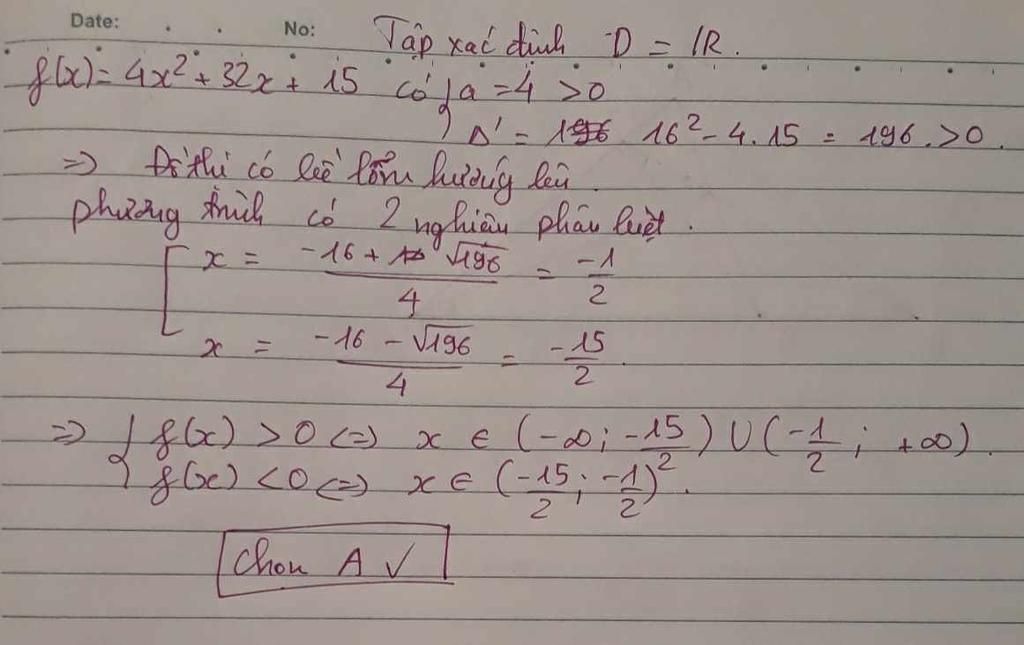 Date: No: Tập xác định D = ℝ.
f(x) = 4x² + 32x + 15 có { a = 4 > 0
Δ' = 16² - 4.15 = 196 > 0.
=> Đồ thị có bề lõm hướng lên.
phương trình có 2 nghiệm phân biệt.
[ x = (-16 + √196)/4 = -1/2
x = (-16 - √196)/4 = -15/2.
=> { f(x) > 0 <=> x ∈ (-∞; -15/2) ∪ (-1/2; +∞).
f(x) < 0 <=> x ∈ (-15/2; -1/2).
Chọn A ✓